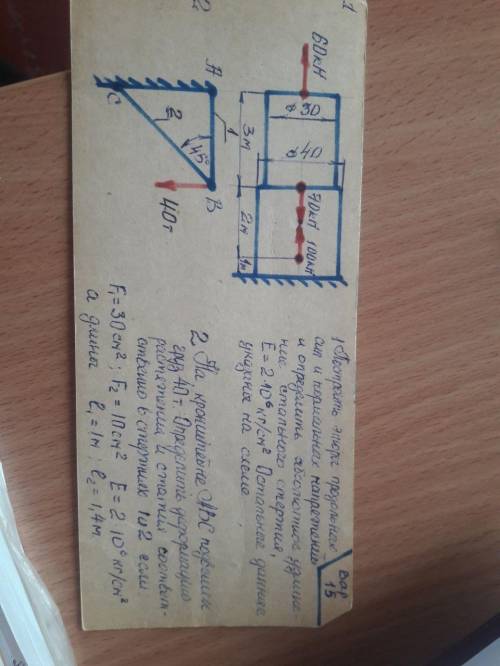 Вар
15
1
60кН
ø30
ø40
70кН
100кН
3м
2м
1м
1 Построить эпюры продольных
сил и нормальных напряжений
и определить абсолютное удлине-
ние стального стержня,
E = 2·10⁶ кг/см² Остальные данные
указаны на схеме
2
A
1
B
45°
2
C
40т
2. На кронштейне ABC подвешен
груз 40т. Определить деформацию
растяжения и сжатия соответ-
ственно в стержнях 1 и 2 если
F₁ = 30см²; F₂ = 10см² E = 2·10⁶ кг/см²
а длины l₁ = 1м; l₂ = 1,4м